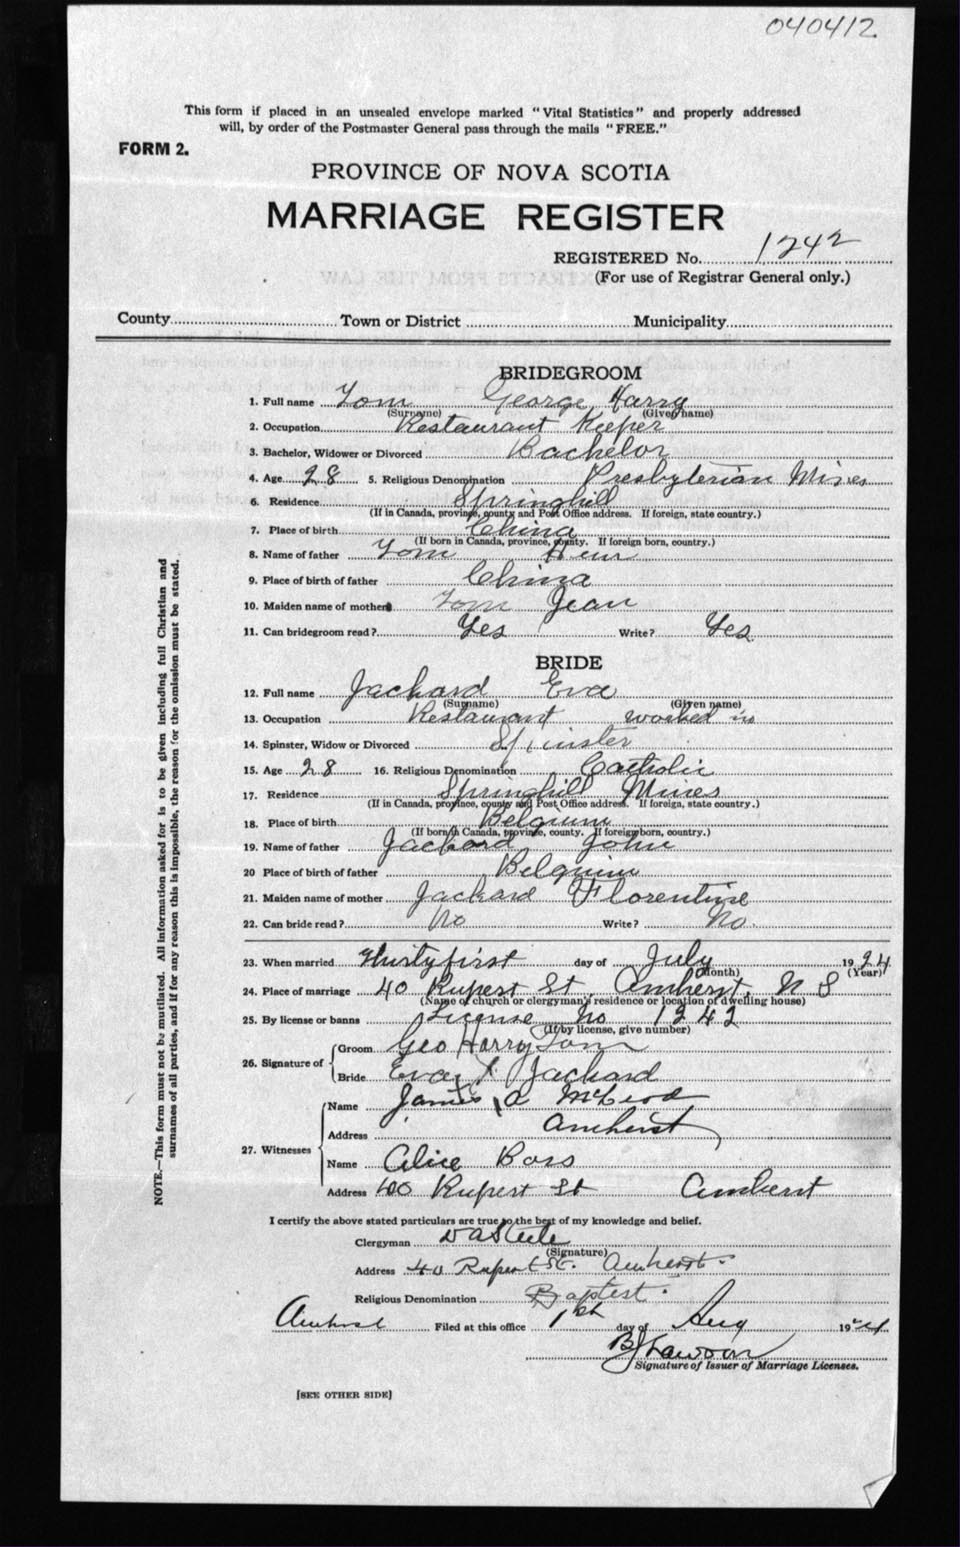 040412
This form if placed in an unsealed envelope marked "Vital Statistics" and properly addressed
will, by order of the Postmaster General pass through the mails "FREE."
FORM 2.
PROVINCE OF NOVA SCOTIA
MARRIAGE REGISTER
REGISTERED No. 1242
(For use of Registrar General only.)
County Town or District Municipality
BRIDEGROOM
1. Full name Tom George Harry
(Surname) (Given name)
2. Occupation Restaurant Keeper
3. Bachelor, Widower or Divorced Bachelor
4. Age 28 5. Religious Denomination Presbyterian Mines
6. Residence Springhill
(If in Canada, province, county and Post Office address. If foreign, state country.)
7. Place of birth China
(If born in Canada, province, county. If foreign born, country.)
8. Name of father Tom
9. Place of birth of father China
10. Maiden name of mother Tom Jean
11. Can bridegroom read? Yes Write? Yes
BRIDE
12. Full name Jackard Eva
(Surname) (Given name)
13. Occupation Restaurant worked in
14. Spinster, Widow or Divorced Spinster
15. Age 28 16. Religious Denomination Catholic
17. Residence Springhill Mines
(If in Canada, province, county and Post Office address. If foreign, state country.)
18. Place of birth Belgium
(If born in Canada, province, county. If foreign born, country.)
19. Name of father Jackard John
20 Place of birth of father Belguim
21. Maiden name of mother Jackard Florentine
22. Can bride read? No Write? No.
23. When married Thirtyfirst day of July 1924
(Month) (Year)
24. Place of marriage 40 Rupert St Amherst, N S
(Name of church or clergyman's residence or location of dwelling house)
25. By license or banns License No 1242
(If by license, give number)
26. Signature of Groom Geo Harry Tom
Bride Eva X Jackard
27. Witnesses Name James A McLeod
Address Amherst
Name Alice Boss
Address 40 Rupert St Amherst
I certify the above stated particulars are true to the best of my knowledge and belief.
Clergyman D A Steele
(Signature)
Address 40 Rupert St. Amherst.
Religious Denomination Baptest.
Amherst Filed at this office 1st day of Aug 1924
Lawson
Signature of Issuer of Marriage Licenses.
[SEE OTHER SIDE]
NOTE.—This form must not be mutilated. All information asked for is to be given including full Christian and
surnames of all parties, and if for any reason this is impossible, the reason for the omission must be stated.